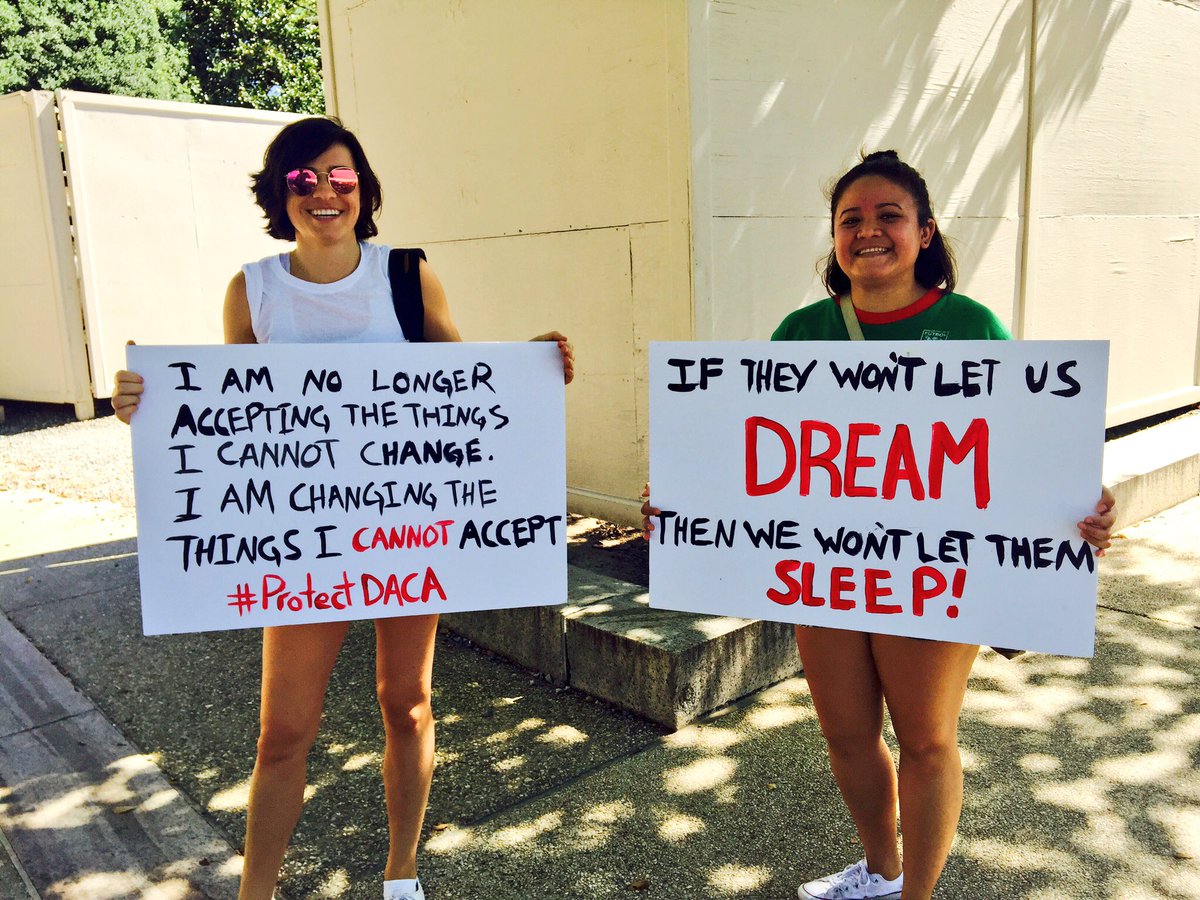 I AM NO LONGER
ACCEPTING THE THINGS
I CANNOT CHANGE.
I AM CHANGING THE
THINGS I CANNOT ACCEPT
#ProtectDACA
IF THEY WON'T LET US
DREAM
THEN WE WON'T LET THEM
SLEEP!
FUTBOL